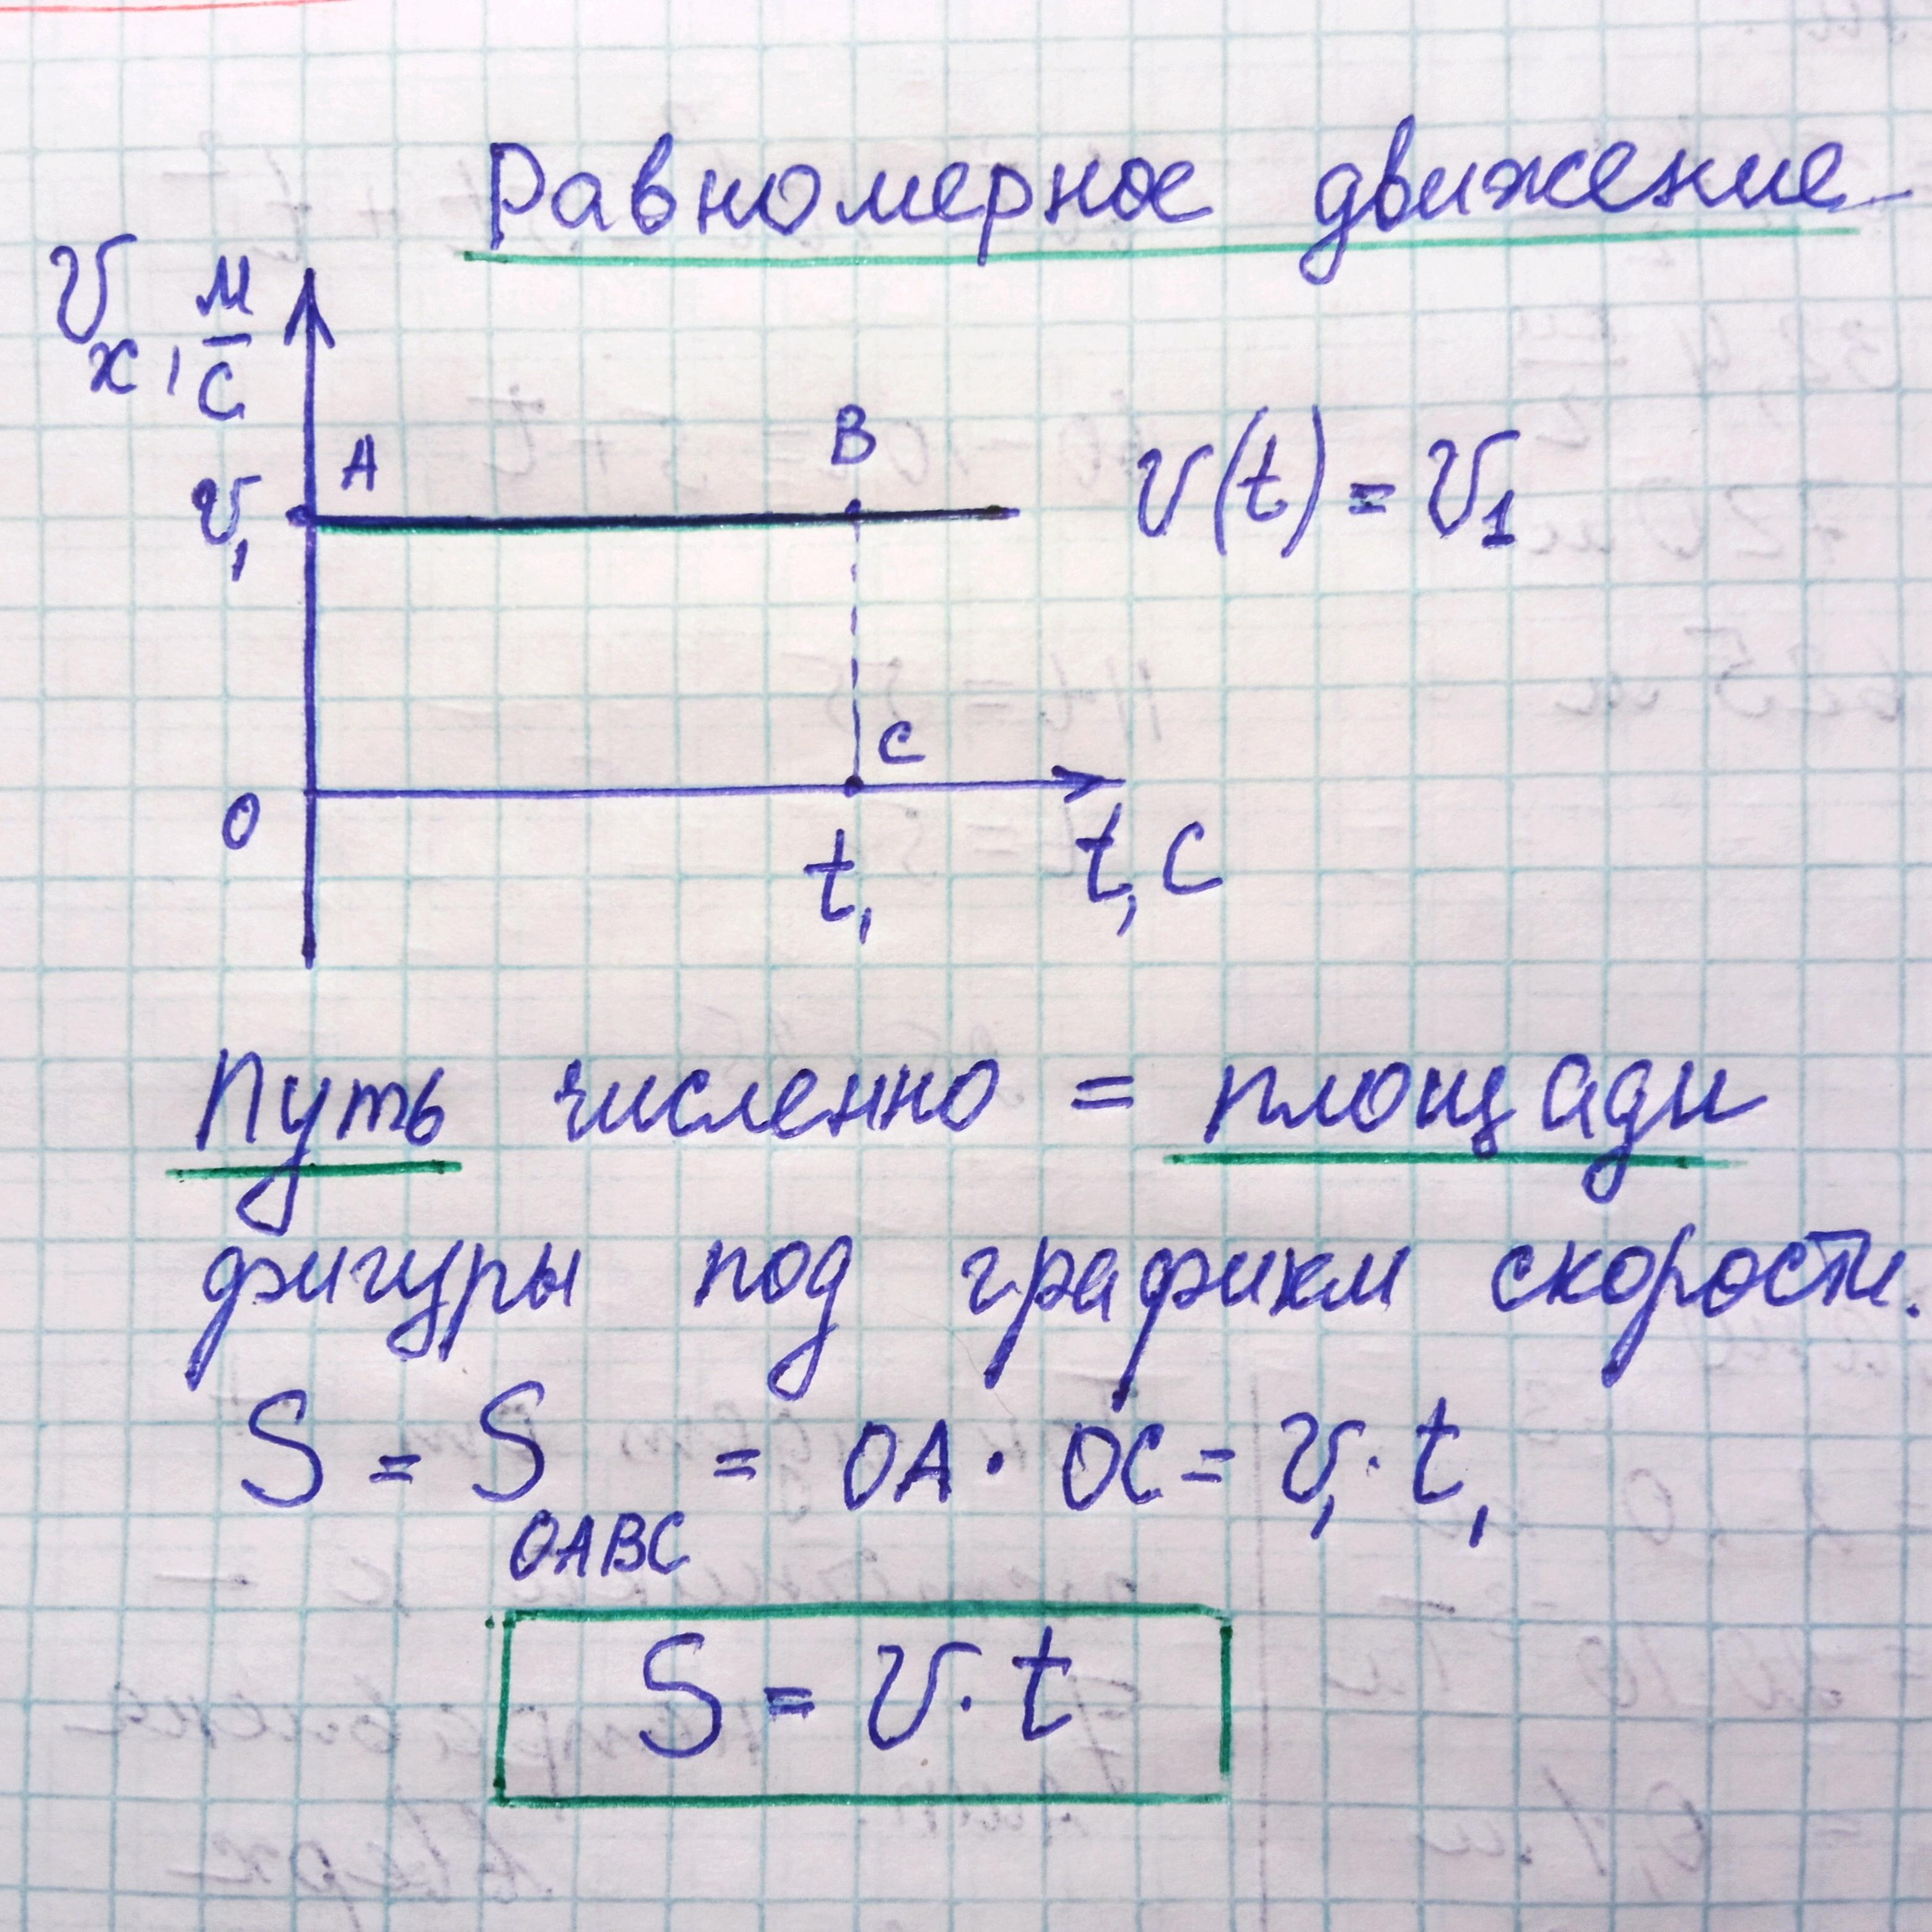 Равномерное движение
v_x, м/с
A
B
v₁
v(t) = v₁
C
O
t₁
t, c
Путь численно = площади
фигуры под графикм скорости.
S = S_OABC = OA · OC = v₁ · t₁
S = v · t